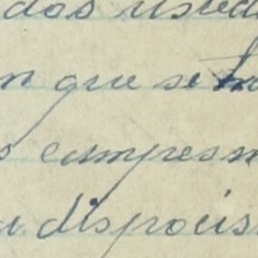 dos usted
n que se
s compresn
a disprocis